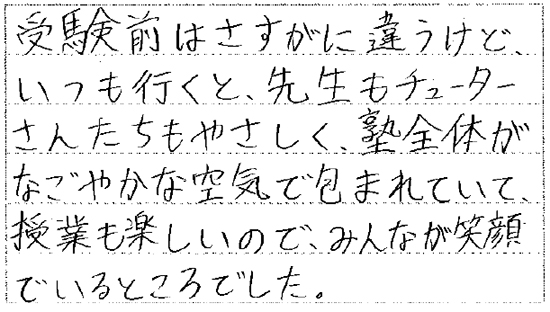 受験前はさすがに違うけど、
いつも行くと、先生もチューター
さんたちもやさしく、塾全体が
なごやかな空気で包まれていて、
授業も楽しいので、みんなが笑顔
でいるところでした。